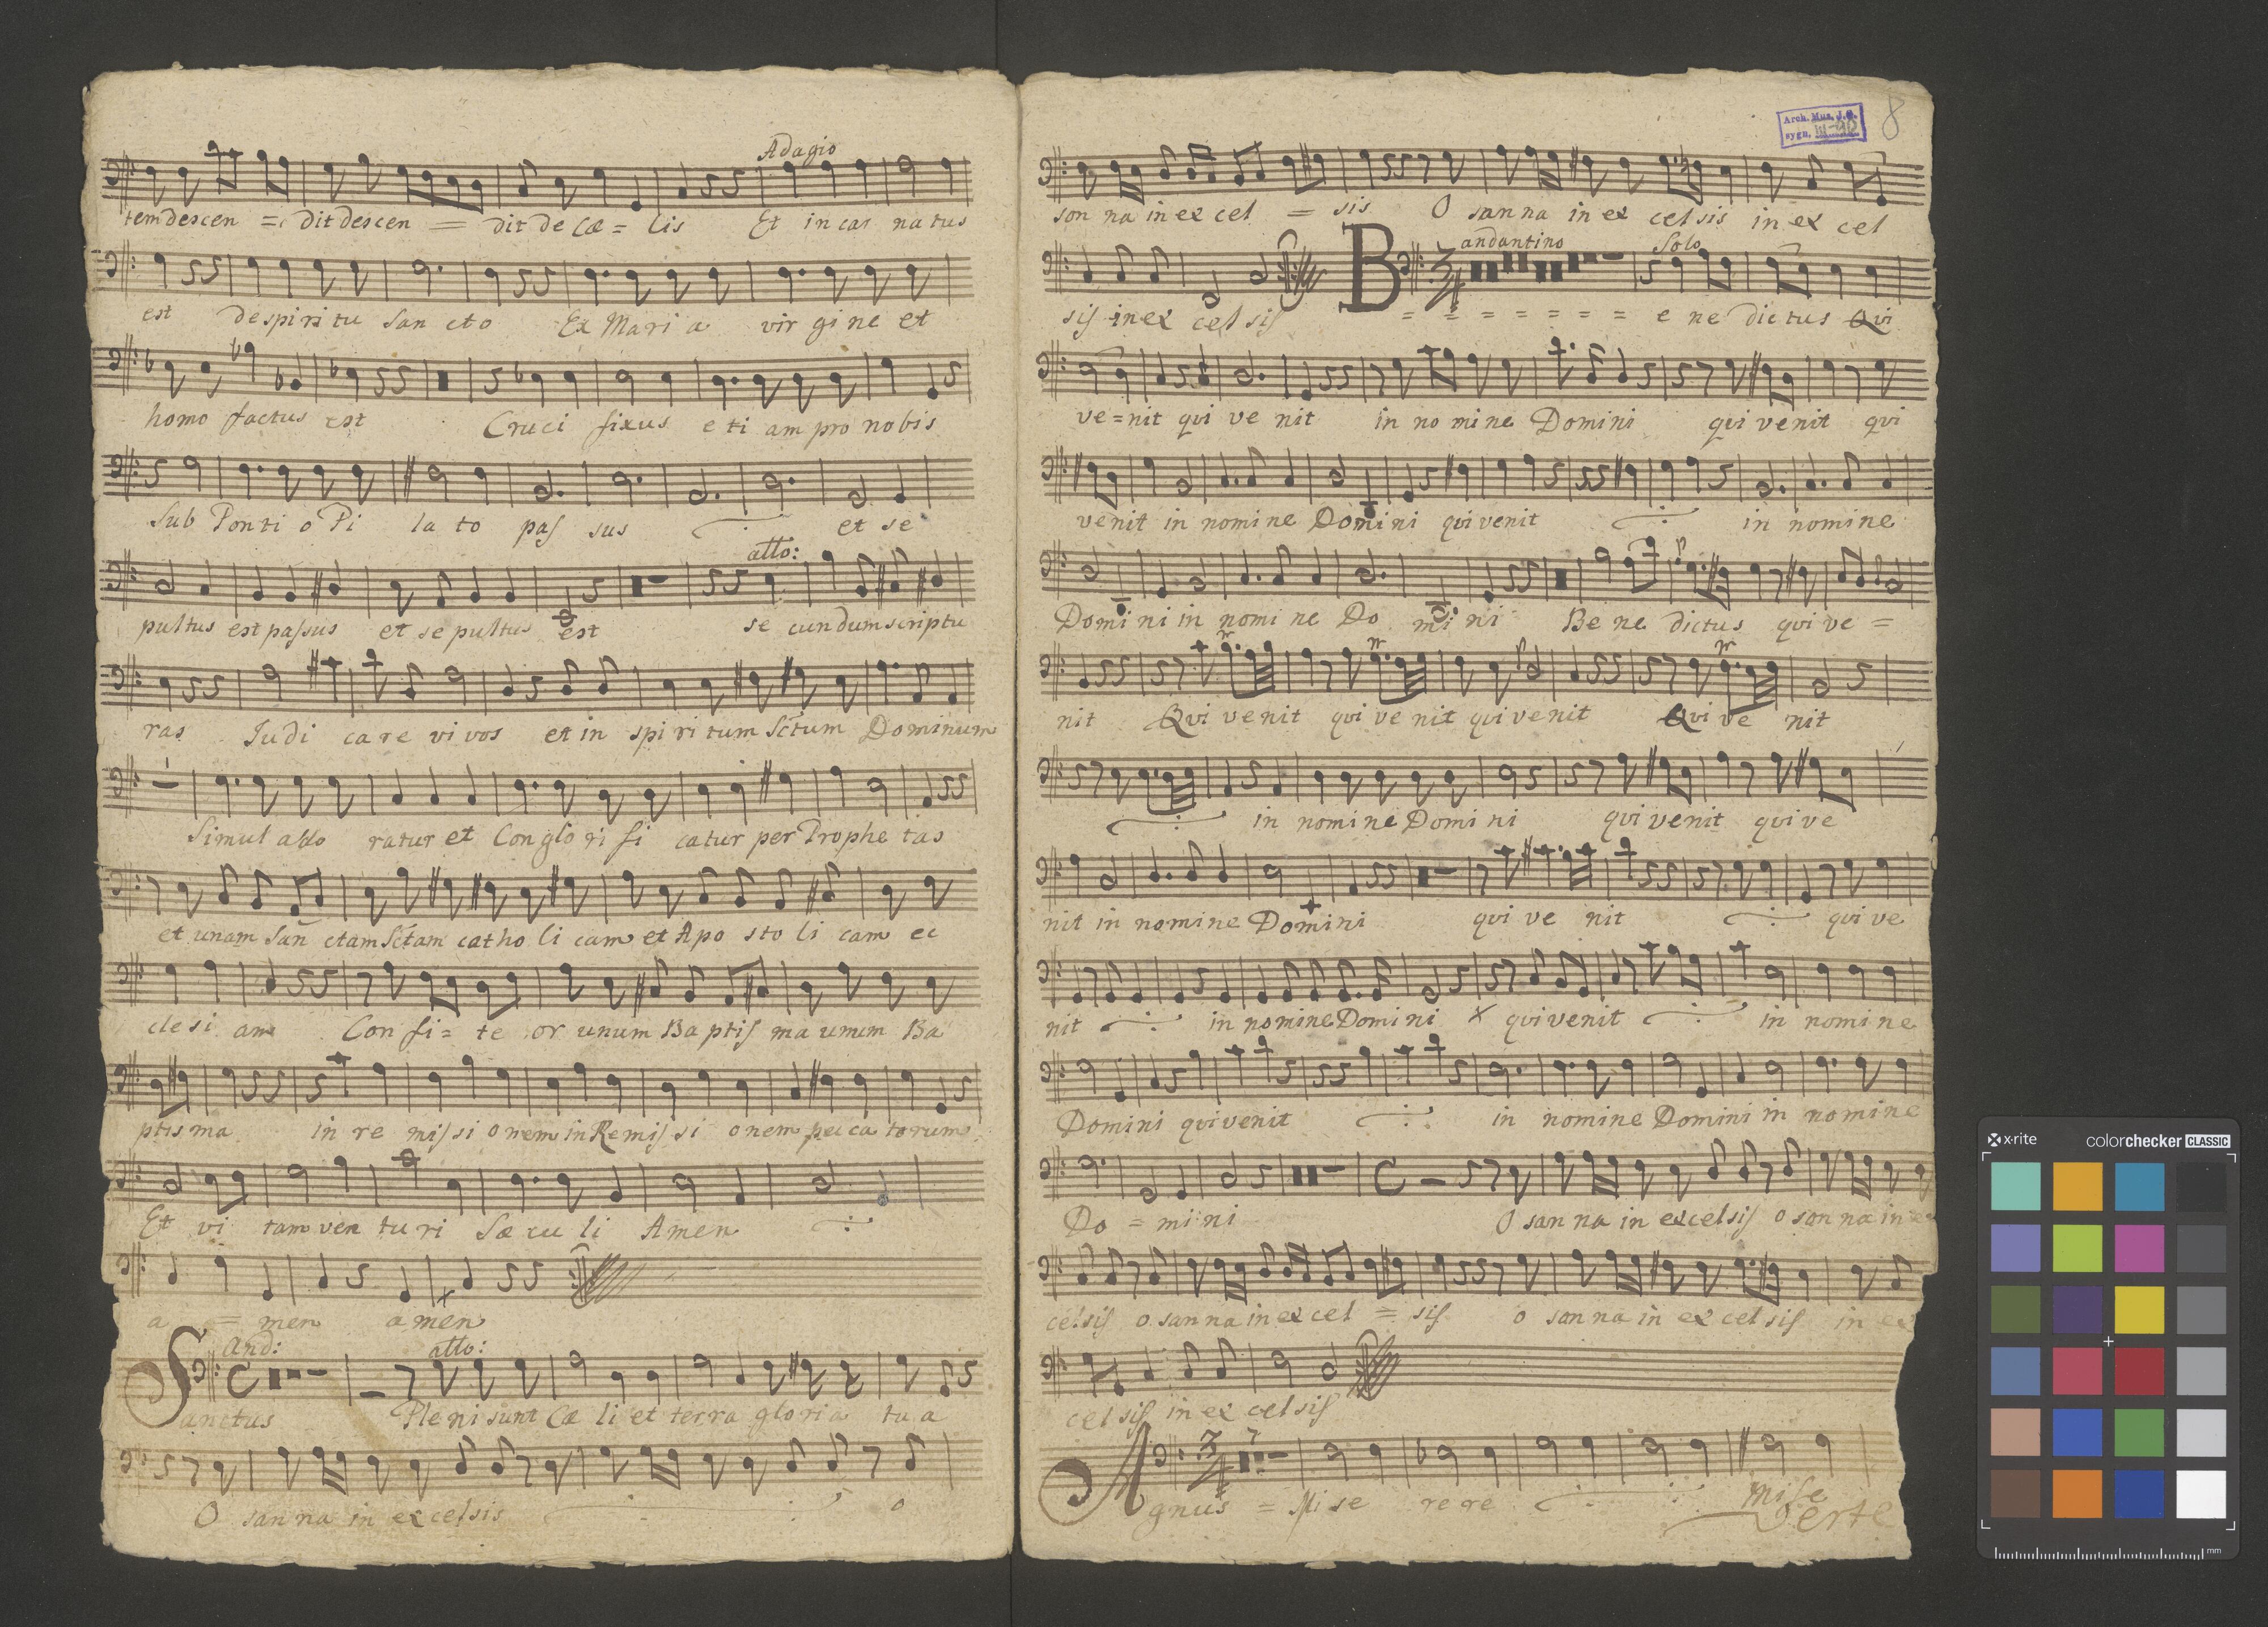 Adagio
tem descen = dit descen = dit de Cæ = lis Et in car natus
est de spiri tu San cto Ex Mari a vir gi ne et
homo factus est Cruci fixus e ti am pro nobis
Sub Ponti o Pi la to pas sus et se
allo:
pultus est passus et se pultus est se cundum scriptu
ras Judi care vi vos et in spi ri tum Sctum Dominum
Simul ado ratur et Con glo ri fi catur per Prophe tas
et unam San ctam Sctam catho li cam et Apo sto li cam ec
clesi am Con fi = te or unum Ba ptis ma unum Ba
ptis ma in re mis si onem in Remis si onem pecca torum
Et vi tam ven tu ri Sæ cu li Amen
a = men amen
And: allo:
Sanctus Pleni sunt Cæ li et terra gloria tu a
O san na in excelsis o
Arch. Mus. J.G.
sygn. III-
8
son na in ex cel = sis O san na in ex cel sis in ex cel
andantino Solo
sis in ex cel sis B = = = = = = = e ne dictus Qvi
ve = nit qvi ve nit in no mine Domini qvi venit qvi
venit in nomine Domini qvi venit in nomine
Domi ni in nomi ne Do mi ni Be ne dictus qvi ve =
nit Qvi venit qvi ve nit qvi venit Qvi ve nit
in nomine Domi ni qvi venit qvi ve
nit in nomine Domini qvi ve nit qvi ve
nit in nomine Domini x qvi venit in nomine
Domini qvi venit in nomine Domini in nomine
Do = mi ni O san na in excelsis o san na in ex
celsis o san na in ex cel = sis o san na in ex cel sis in ex
cel sis in ex cel sis
3/4 7
Agnus = Mi se re re mise
Verte
x-rite colorchecker CLASSIC
mm